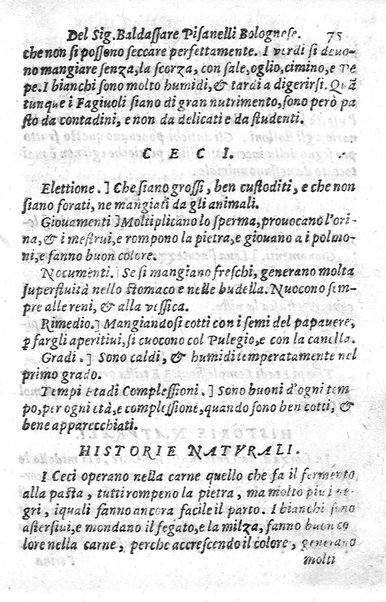 Del Sig. Baldassare Pisanelli Bolognese. 75
che non si possono seccare perfettamente. I verdi si deuo-
no mangiare senza, la scorza, con sale, oglio, cimino, e pe
pe. I bianchi sono molto humidi, & tardi a digerirsi. Quã
tunque i Fagiuoli siano di gran nutrimento, sono però pa
sto da contadini, e non da delicati e da studenti.
CECI.
Elettione.] Che siano grossi, ben custoditi, e che non
siano forati, ne mangiati da gli animali.
Giouamenti] Moltiplicano lo sperma, prouocano l'ori
na, & i mestrui, e rompono la pietra, e giouano a i polmo
ni, e fanno buon colore.
Nocumenti.] Se si mangiano freschi, generano molta
superfluità nello stomaco e nelle budella. Nuocono sem-
pre alle reni, & alla vessica.
Rimedio.] Mangiandosi cotti con i semi del papauere,
p fargli aperitiui, si cuocono col Pulegio, e con la canella.
Gradi.] Sono caldi, & humidi temperatamente nel
primo grado.
Tempi Etadi Complessioni.] Sono buoni d'ogni tem-
po, per ogni età, e complessione, quando sono ben cotti, &
bene apparecchiati.
HISTORIE NATVRALI.
I Ceci operano nella carne quello che fa il fermento
alla pasta, tutti rompeno la pietra, ma molto piu i ne-
gri, i quali fanno ancora facile il parto. I bianchi sono
astersiui, e mondano il fegato, e la milza, fanno buon co
lore nella carne, perche accrescendo il colore, generano
molti